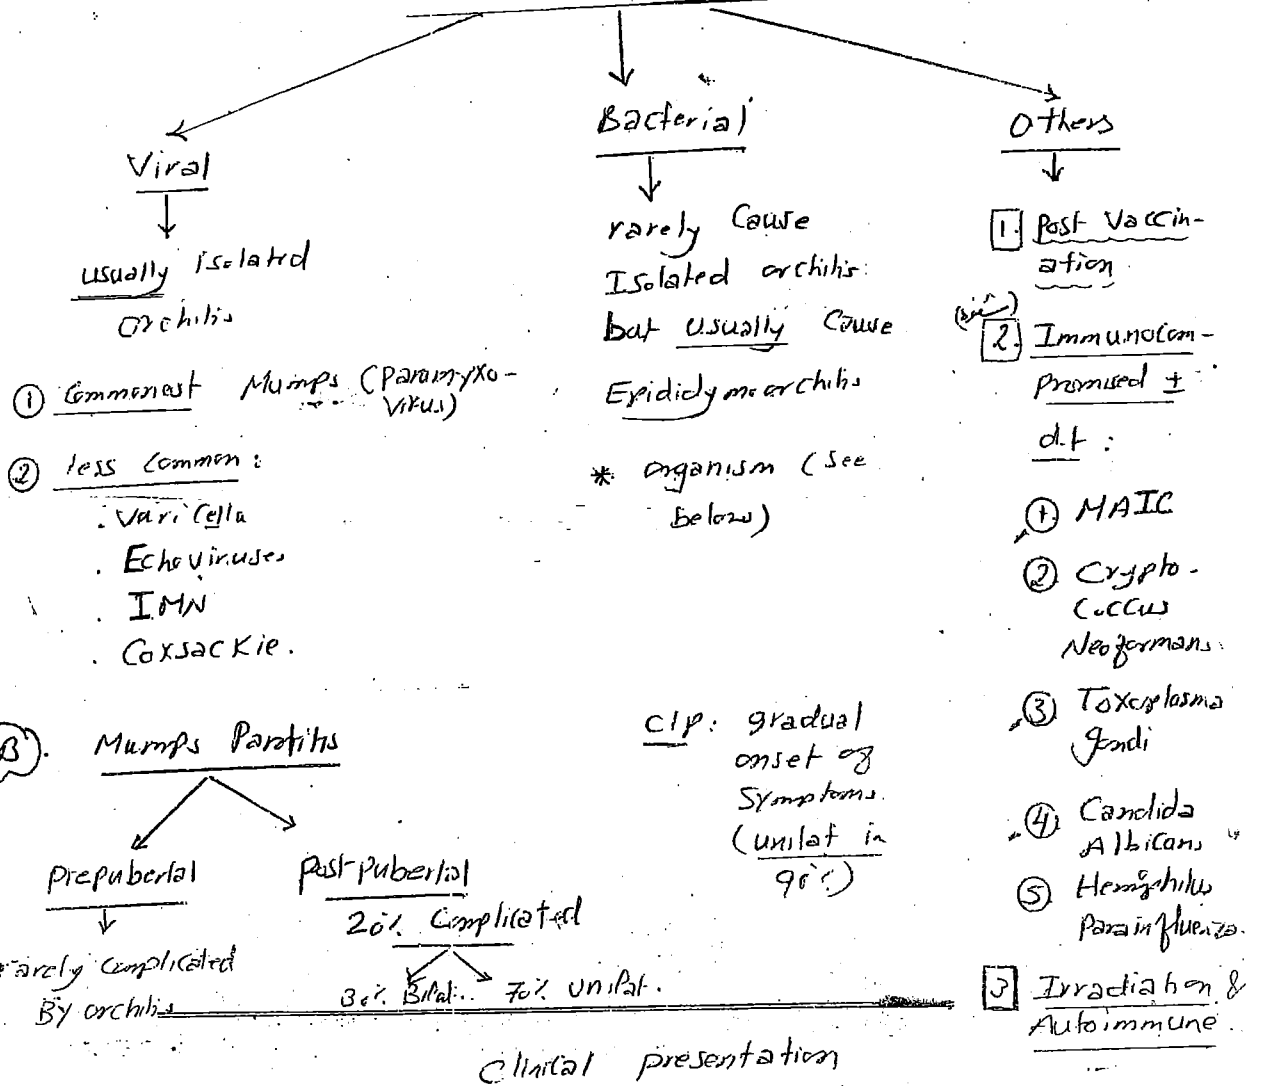 Viral
usually isolated
orchitis
① Commonest Mumps (Paramyxo-
virus)
② less Common:
. Varicella
. Echoviruses
. IMN
. Coxsackie.
B). Mumps Parotitis
Prepubertal
rarely complicated
By orchitis
Post pubertal
20% Complicated
30% Bilat. 70% unilat.
Bacterial
rarely Cause
Isolated orchitis
but usually Cause
Epididymoorchitis
* organism (See
below)
C/P: gradual
onset of
Symptoms.
(unilat in
90%)
Others
1. Post Vaccin-
ation
2. Immunocom-
promised ±
d.t :
① MAIC
② Crypto-
coccus
Neoformans.
③ Toxoplasma
gondi
④ Candida
Albicans
⑤ Hemophilus
Parainfluenza.
3 Irradiation &
Autoimmune.
Clinical presentation